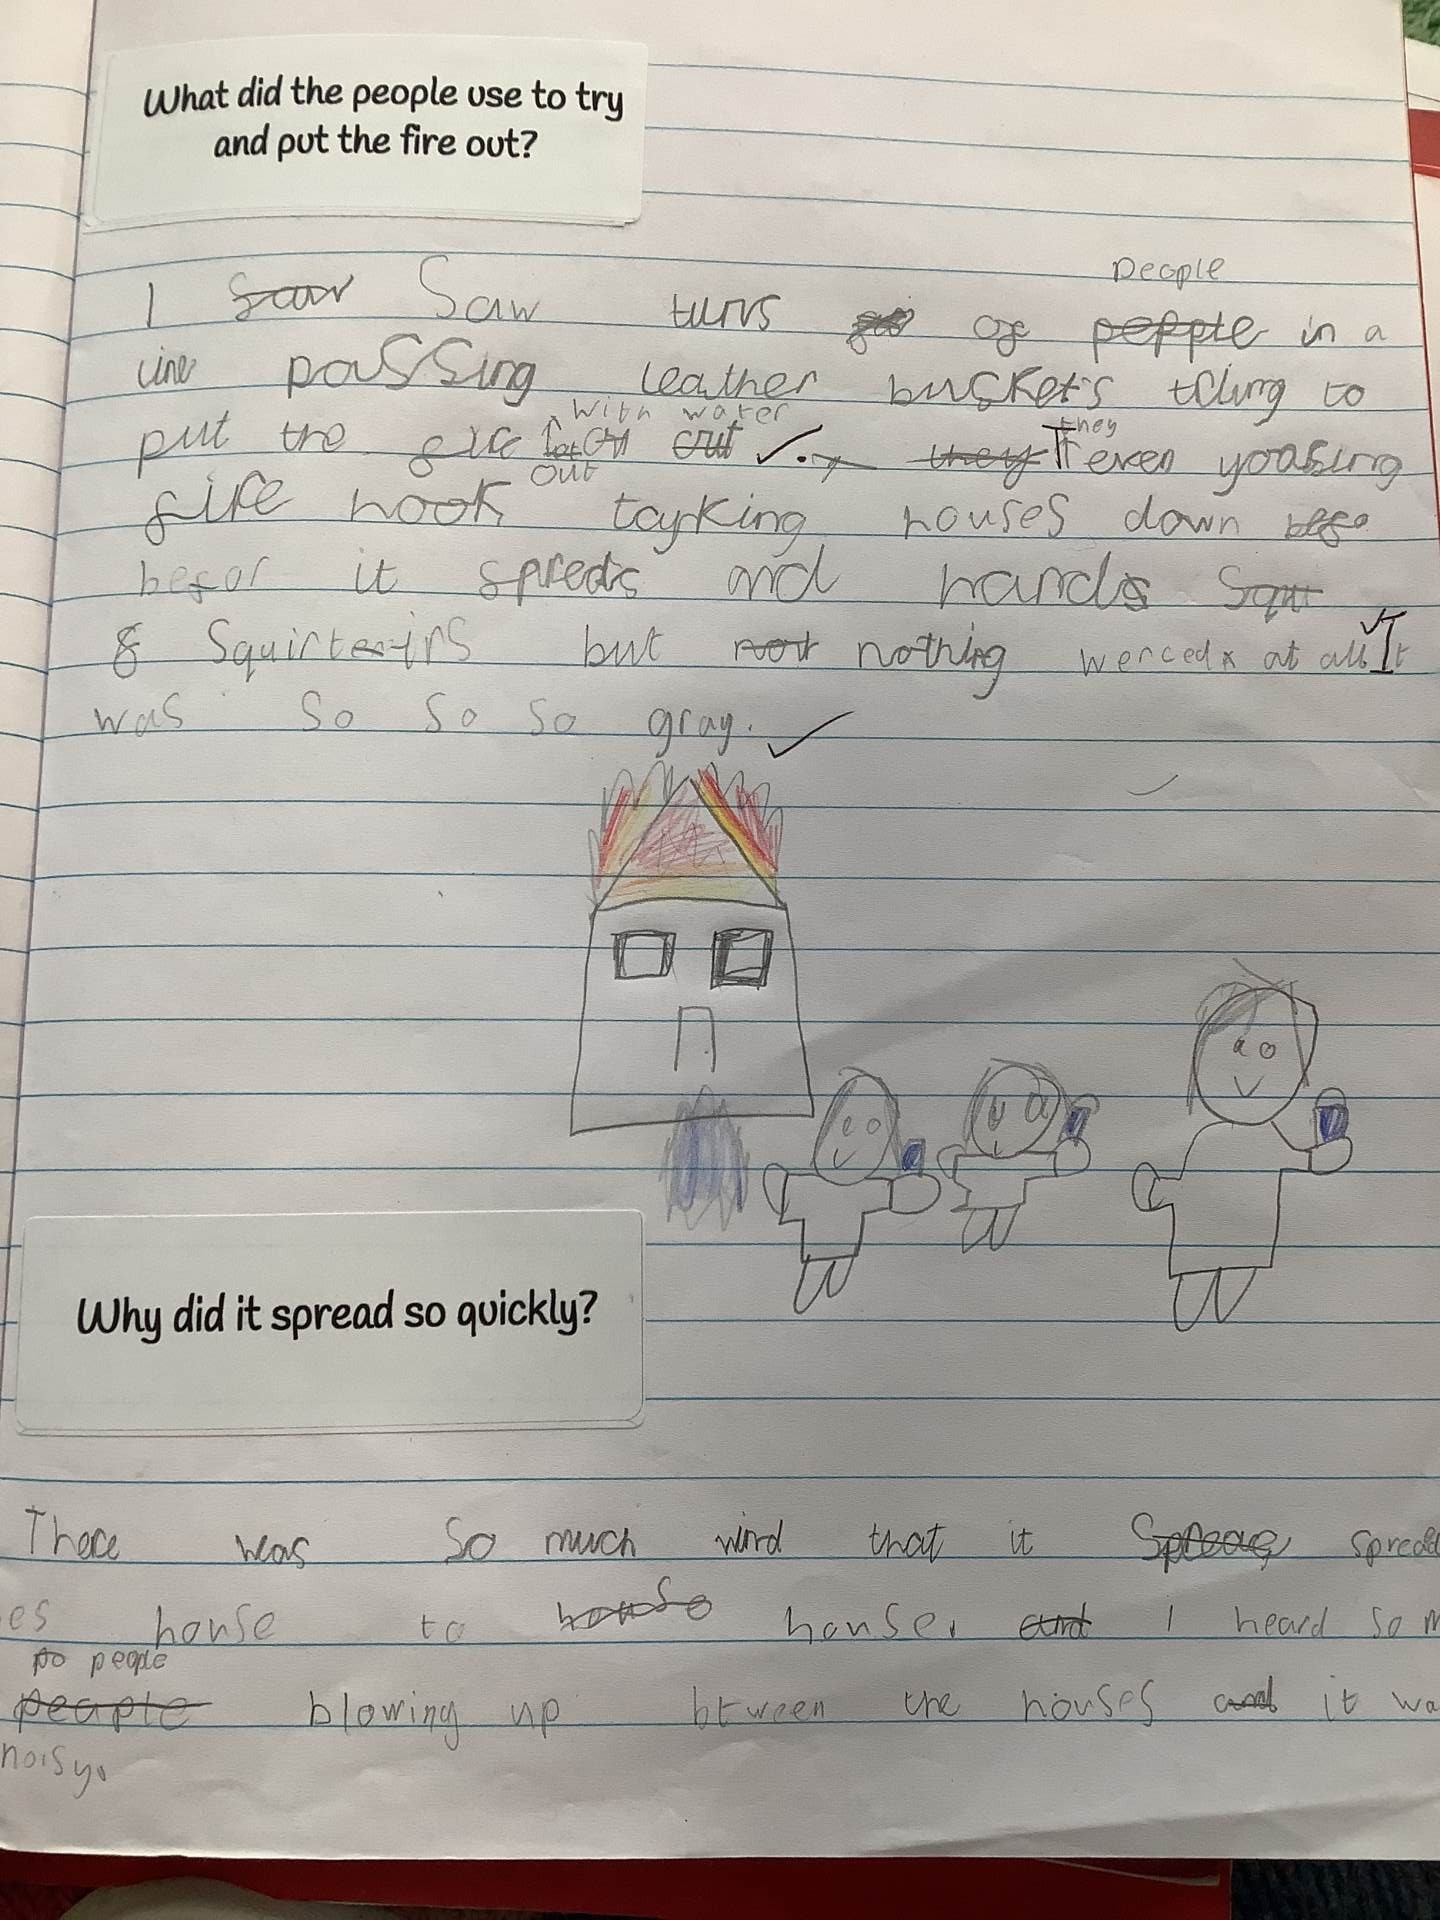 What did the people use to try
and put the fire out?
people
I saw Saw turs of pepple in a
line passing leather buckets to
with water they
put the fire out T even yoasing
out
fire hook tayking houses down
befor it spreds and hands Squ
& Squirteirs but not nothing werced at all It
was so so so gray.
Why did it spread so quickly?
There was So much wind that it Spreae spread
es house to house house. and I heard so m
people
peaple blowing up btween the houses and it wa
noisy.